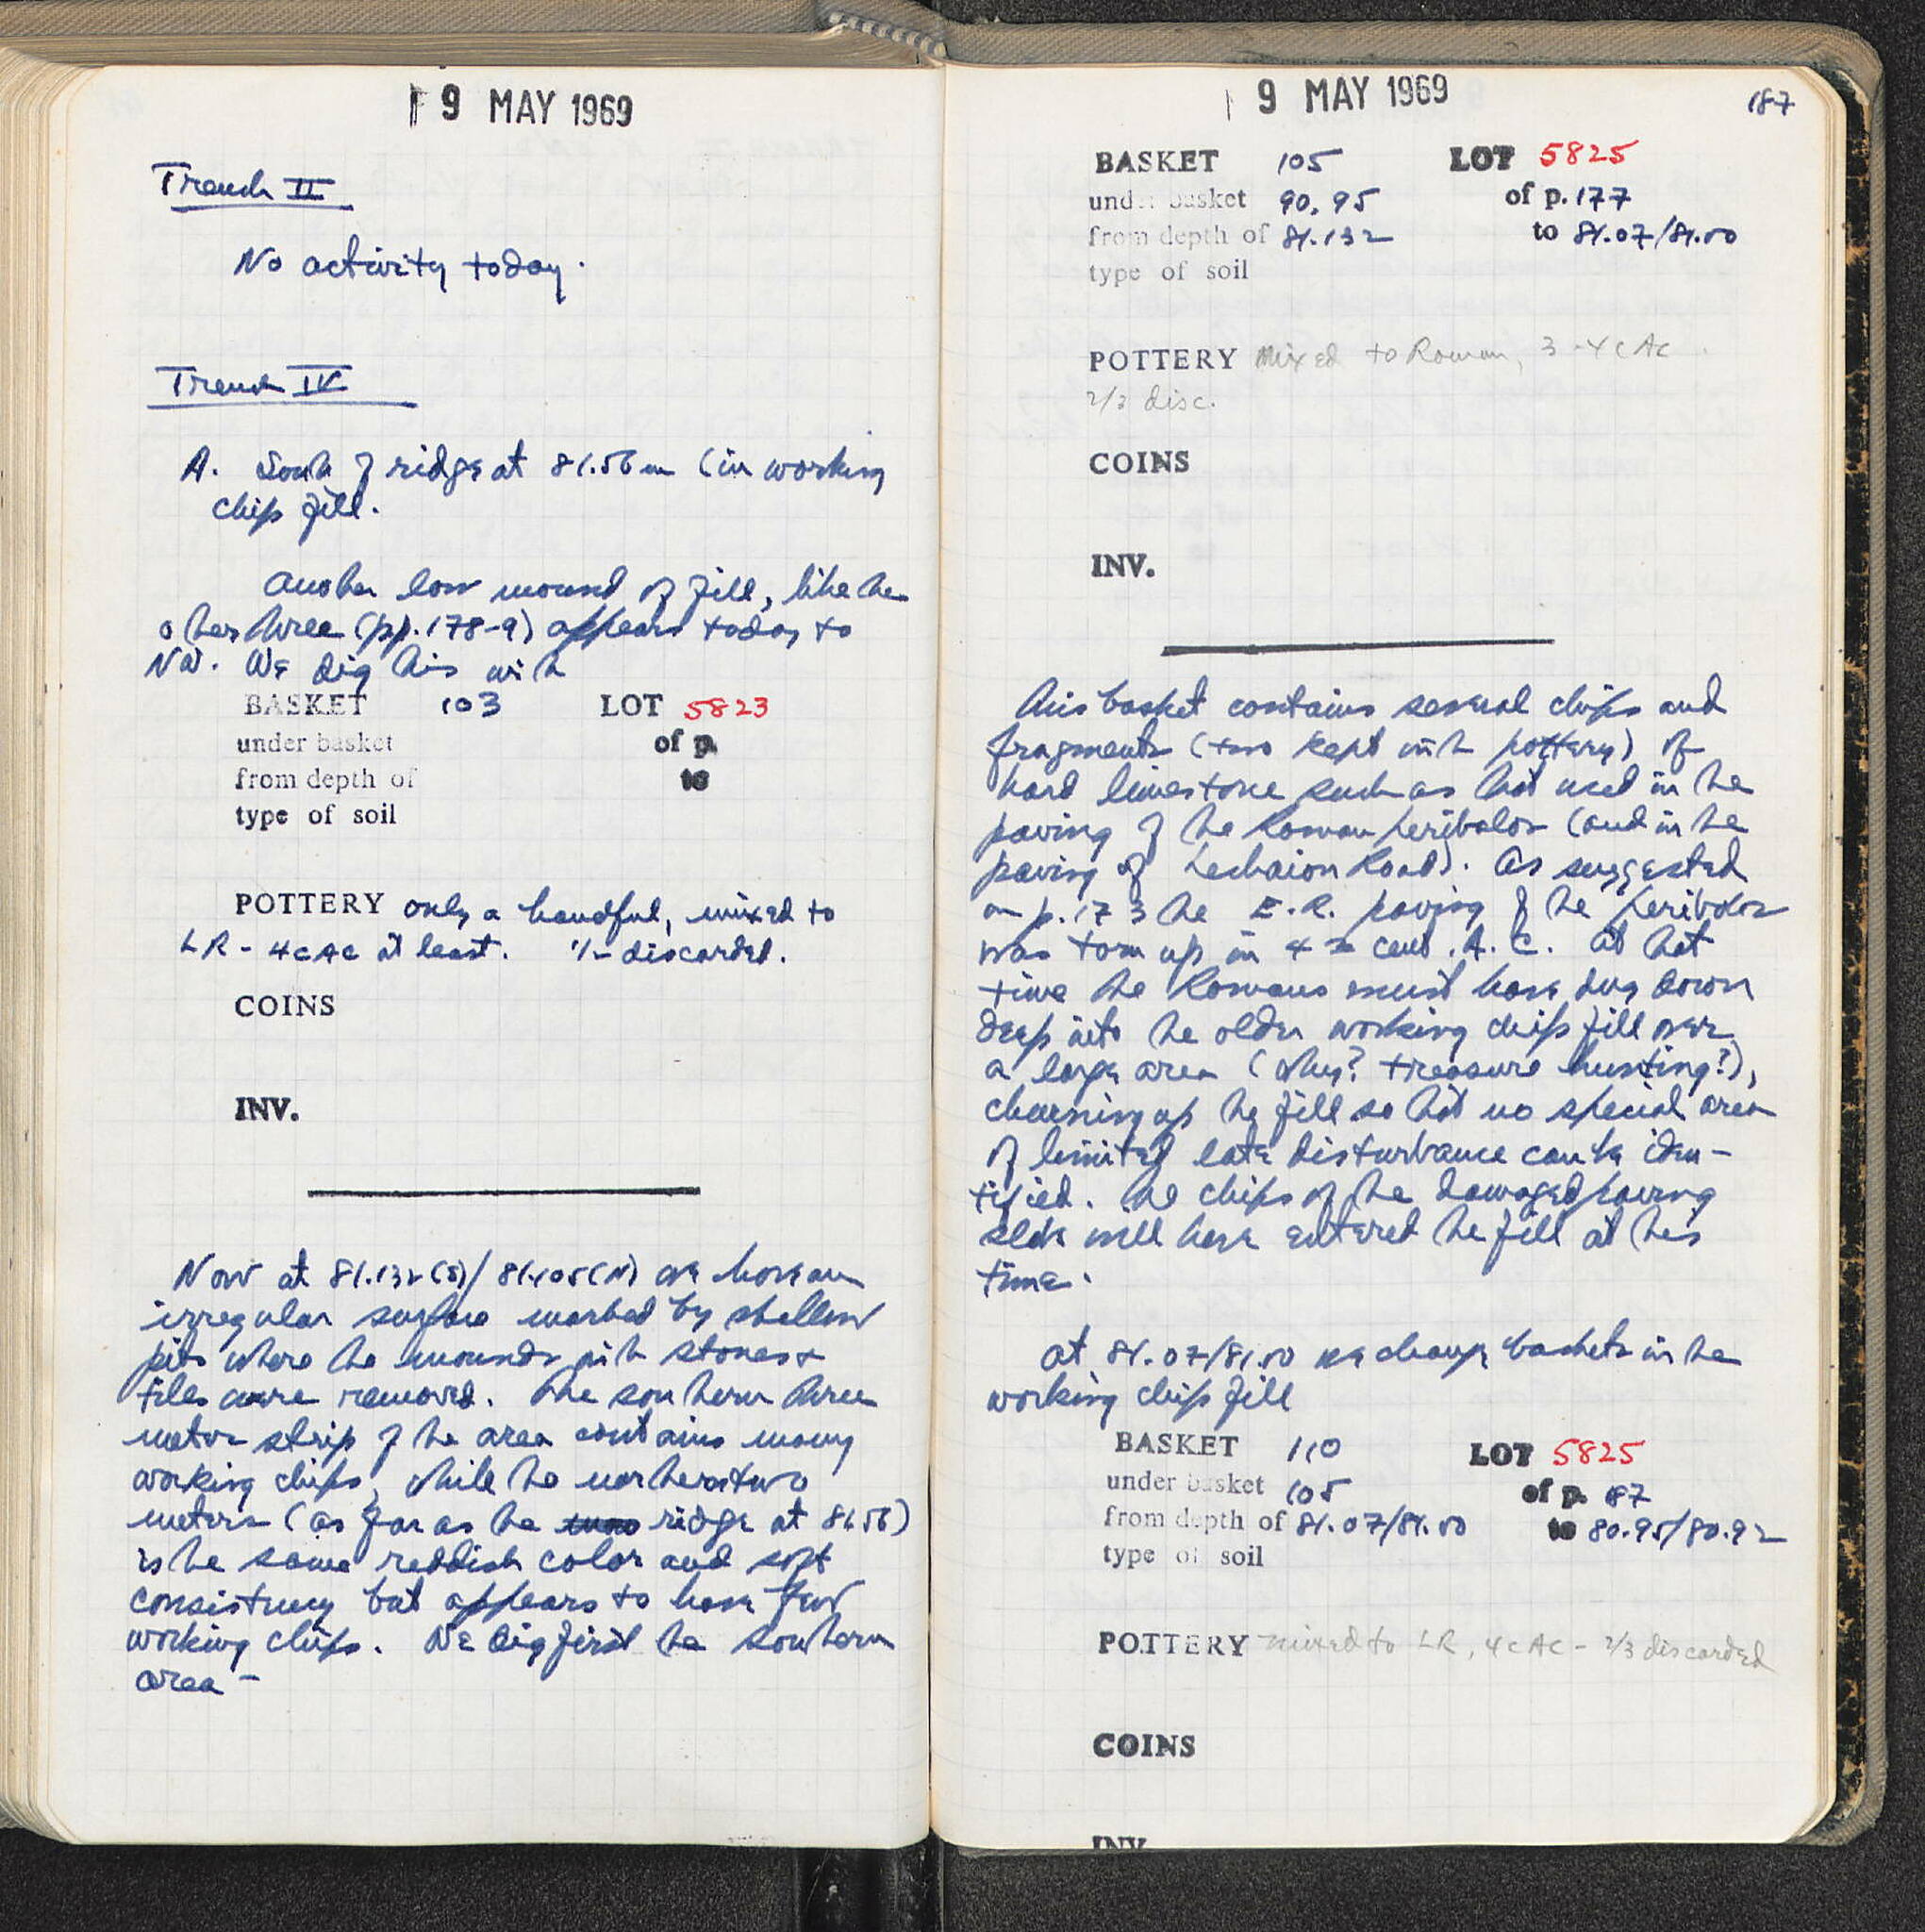 9 MAY 1969
Trench II
No activity today.
Trench IV
A. South of ridge at 81.56 m (in working
chip fill.
Another low mound of fill, like the
other three (pp. 178-9) appears today to
NW. We dig this with
BASKET 103 LOT 5823
under basket of p.
from depth of to
type of soil
POTTERY only a handful, mixed to
LR - 4c AC at least. 1/2 discarded.
COINS
INV.
Now at 81.132(S)/81.105(N) we have an
irregular surface marked by shallow
pits where the mounds with stones +
tiles were removed. The southern three
meter strip of the area contains many
working chips, while the northern two
meters (as far as the ridge at 81.56)
is the same reddish color and soft
consistency but appears to have few
working chips. We dig first the southern
area -
9 MAY 1969
187
BASKET 105 LOT 5825
under basket 90, 95 of p. 177
from depth of 81.132 to 81.07/81.00
type of soil
POTTERY Mixed to Roman, 3-4c AC.
2/3 disc.
COINS
INV.
This basket contains several chips and
fragments (two kept with pottery) of
hard limestone such as that used in the
paving of the Roman peribolos (and in the
paving of Lechaion Road). As suggested
on p. 173 the E.R. paving of the peribolos
was torn up in 4th cent. A.C. At that
time the Romans must have dug down
deep into the older working chip fill over
a large area (why? treasure hunting?),
churning up the fill so that no special area
of limited late disturbance can be iden-
tified. The chips of the damaged paving
slabs will have entered the fill at this
time.
At 81.07/81.00 we change baskets in the
working chip fill
BASKET 110 LOT 5825
under basket 105 of p. 87
from depth of 81.07/81.00 to 80.95/80.92
type of soil
POTTERY mixed to LR, 4c AC - 2/3 discarded
COINS
INV